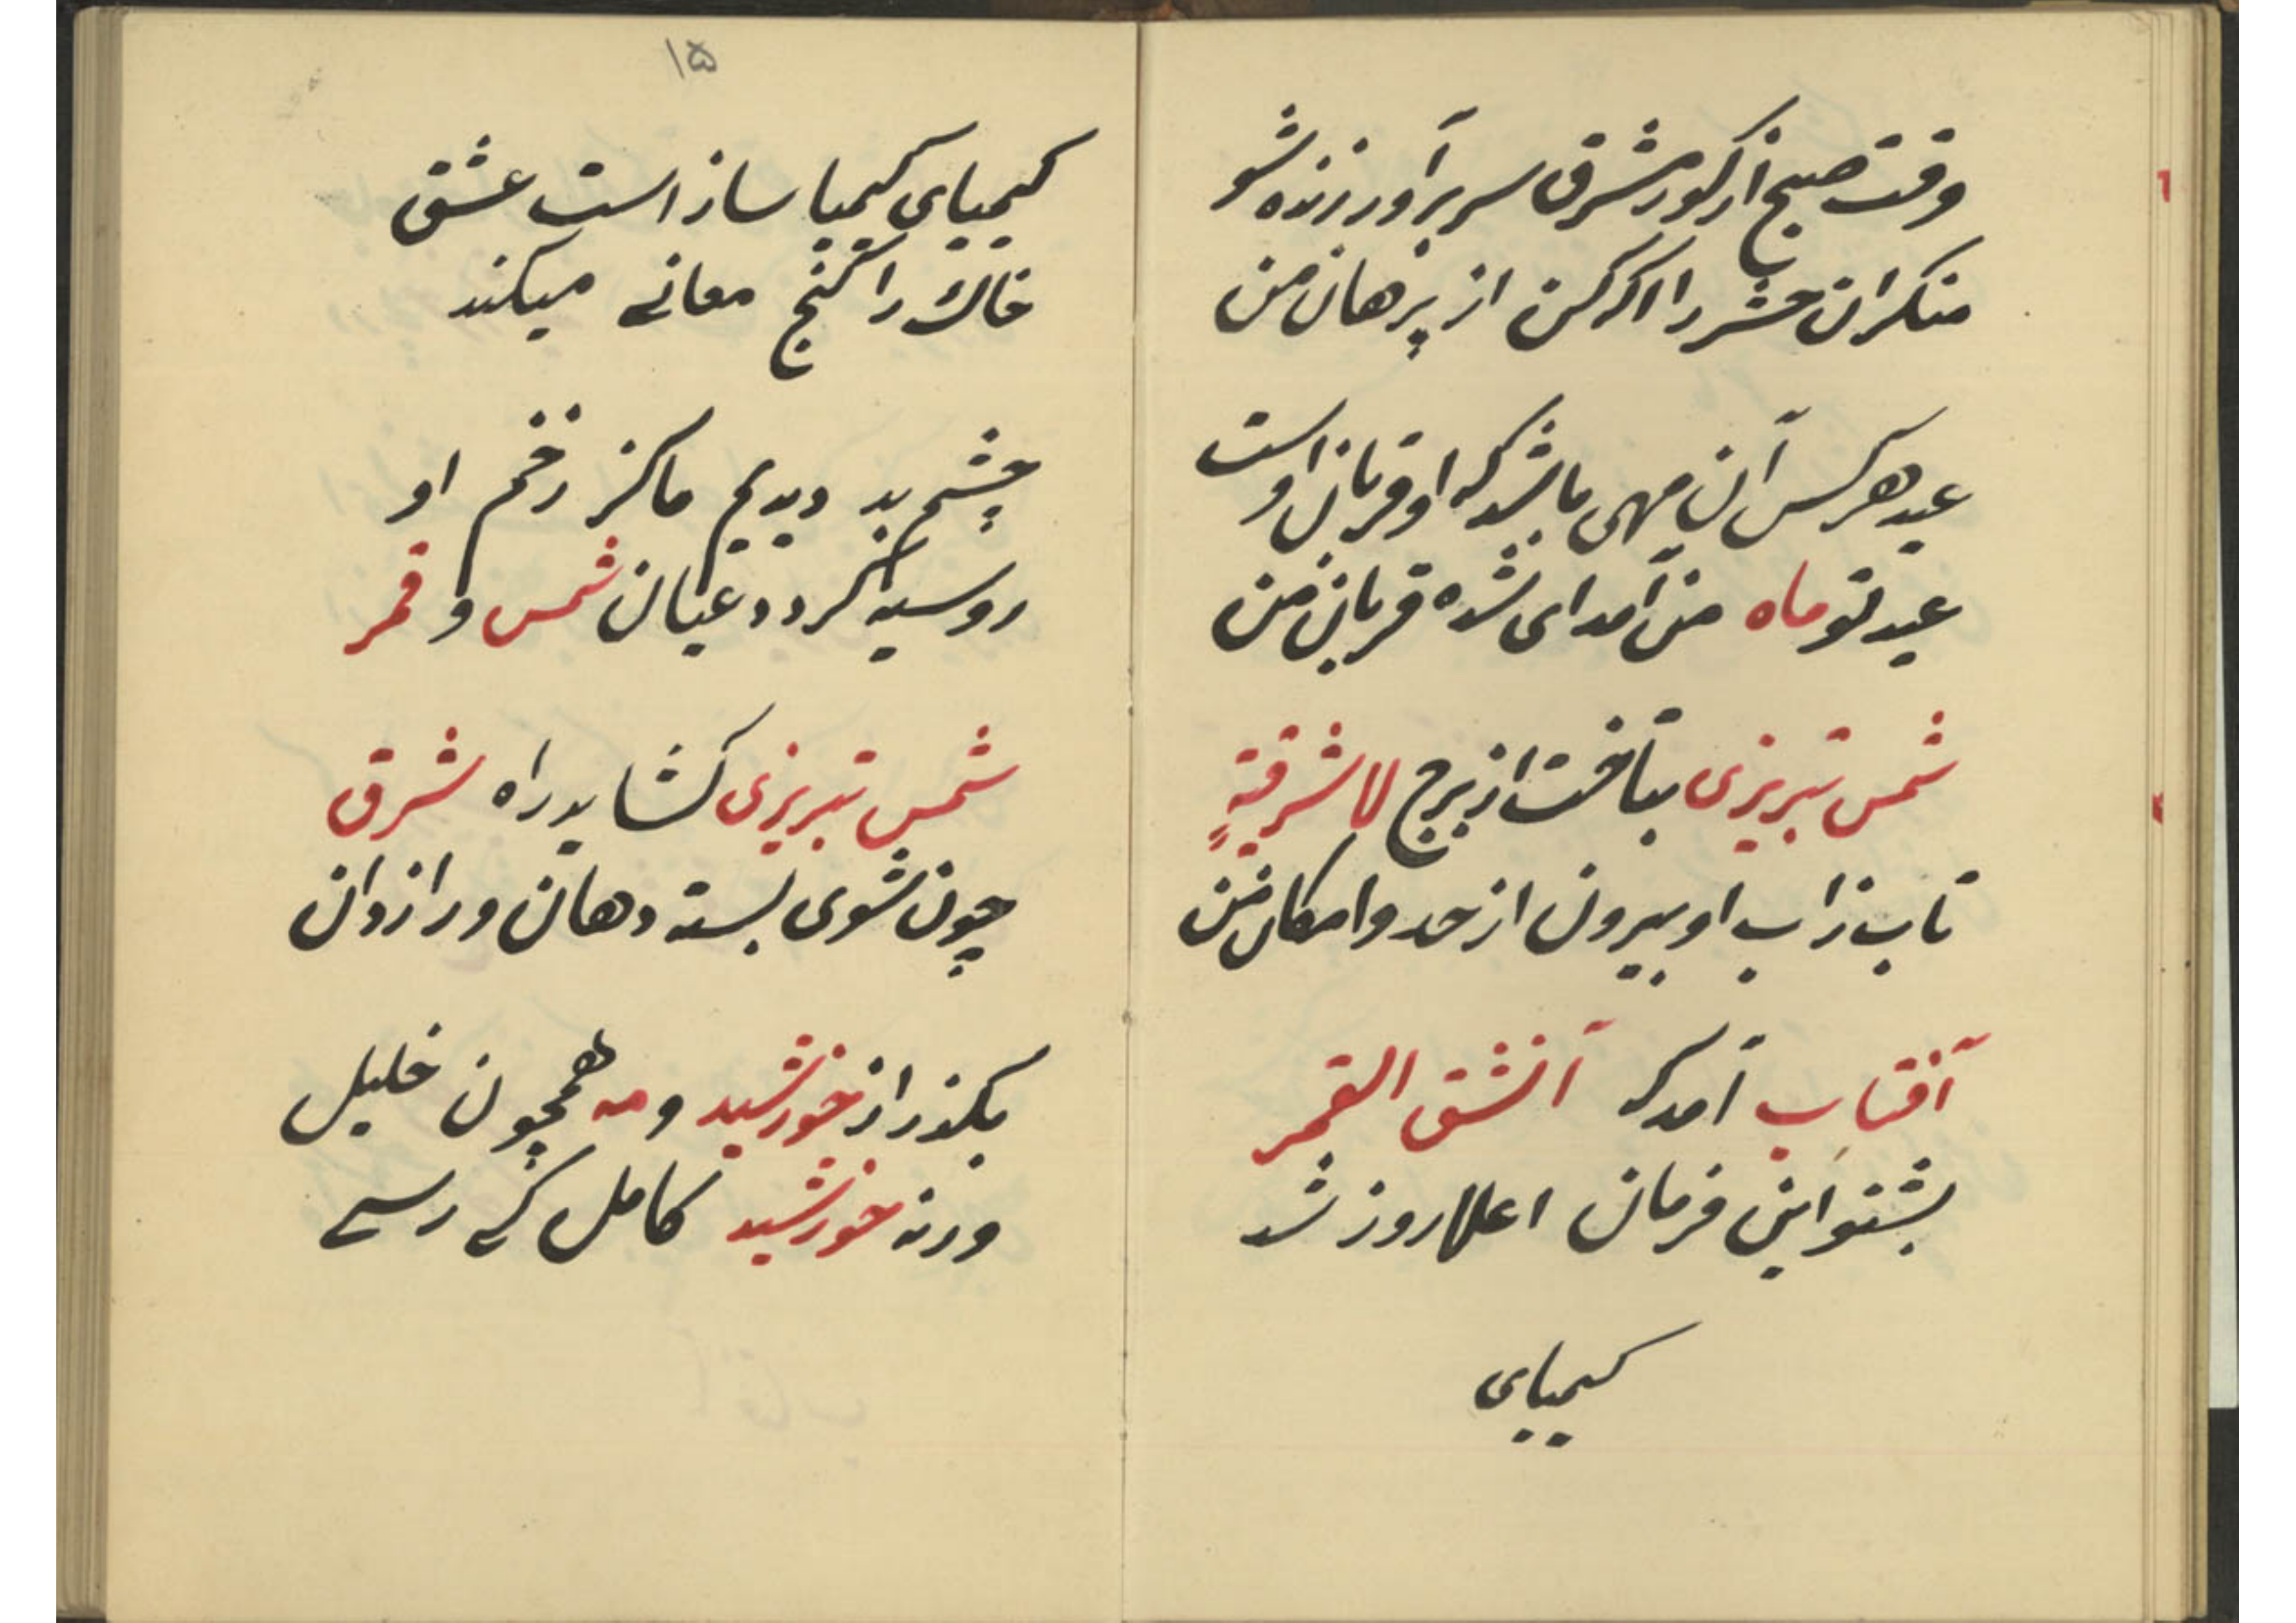 وقت صبح از گور مشرق سر برآور زنده شو
منکران حشر را آگه کن از برهان من
عید هرکس آن مهی باشد که او قربان اوست
عید تو ماه من آمد ای شده قربان من
شمس تبریزی بتافت از برج لا شرقیةٍ
تاب ذات او بیرون از حد و امکان من
آفتاب آمد که آنشق القمر
بشنو این فرمان اعلا روز شد
کیمیای
۱۵
کیمیای کیمیا ساز است عشق
خاک را گنج معانی میکند
چشم بد دیدیم ماکز زخم او
رو سیه گردد عیان شمس و قمر
شمس تبریزی گشاید راه شرق
چون شوی بسته دهان و رازدان
بگذر از خورشید و مه همچون خلیل
ورنه خورشید کامل کی رسی